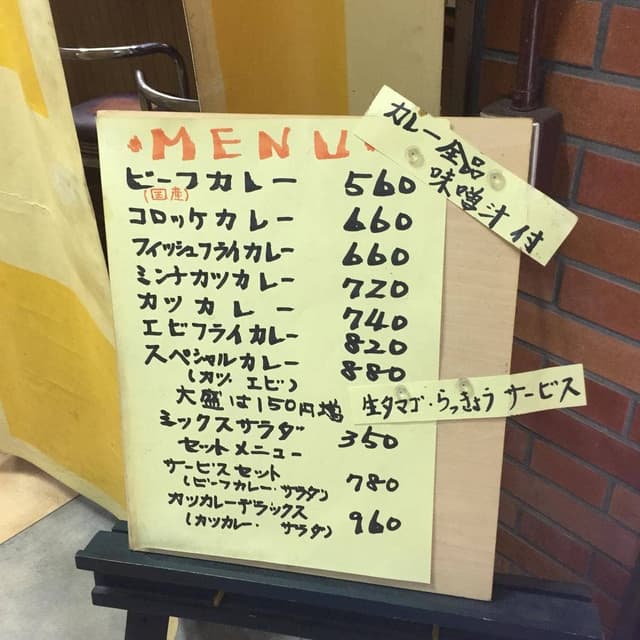 MENU
ビーフカレー 560
(国産)
コロッケカレー 660
フィッシュフライカレー 660
ミンチカツカレー 720
カツカレー 740
エビフライカレー 820
スペシャルカレー 880
(カツ. エビ)
大盛は150円増
ミックスサラダ 350
セットメニュー
サービスセット
(ビーフカレー・サラダ) 780
カツカレーデラックス
(カツカレー・サラダ) 960
カレー全品
味噌汁付
生タマゴ・らっきょうサービス